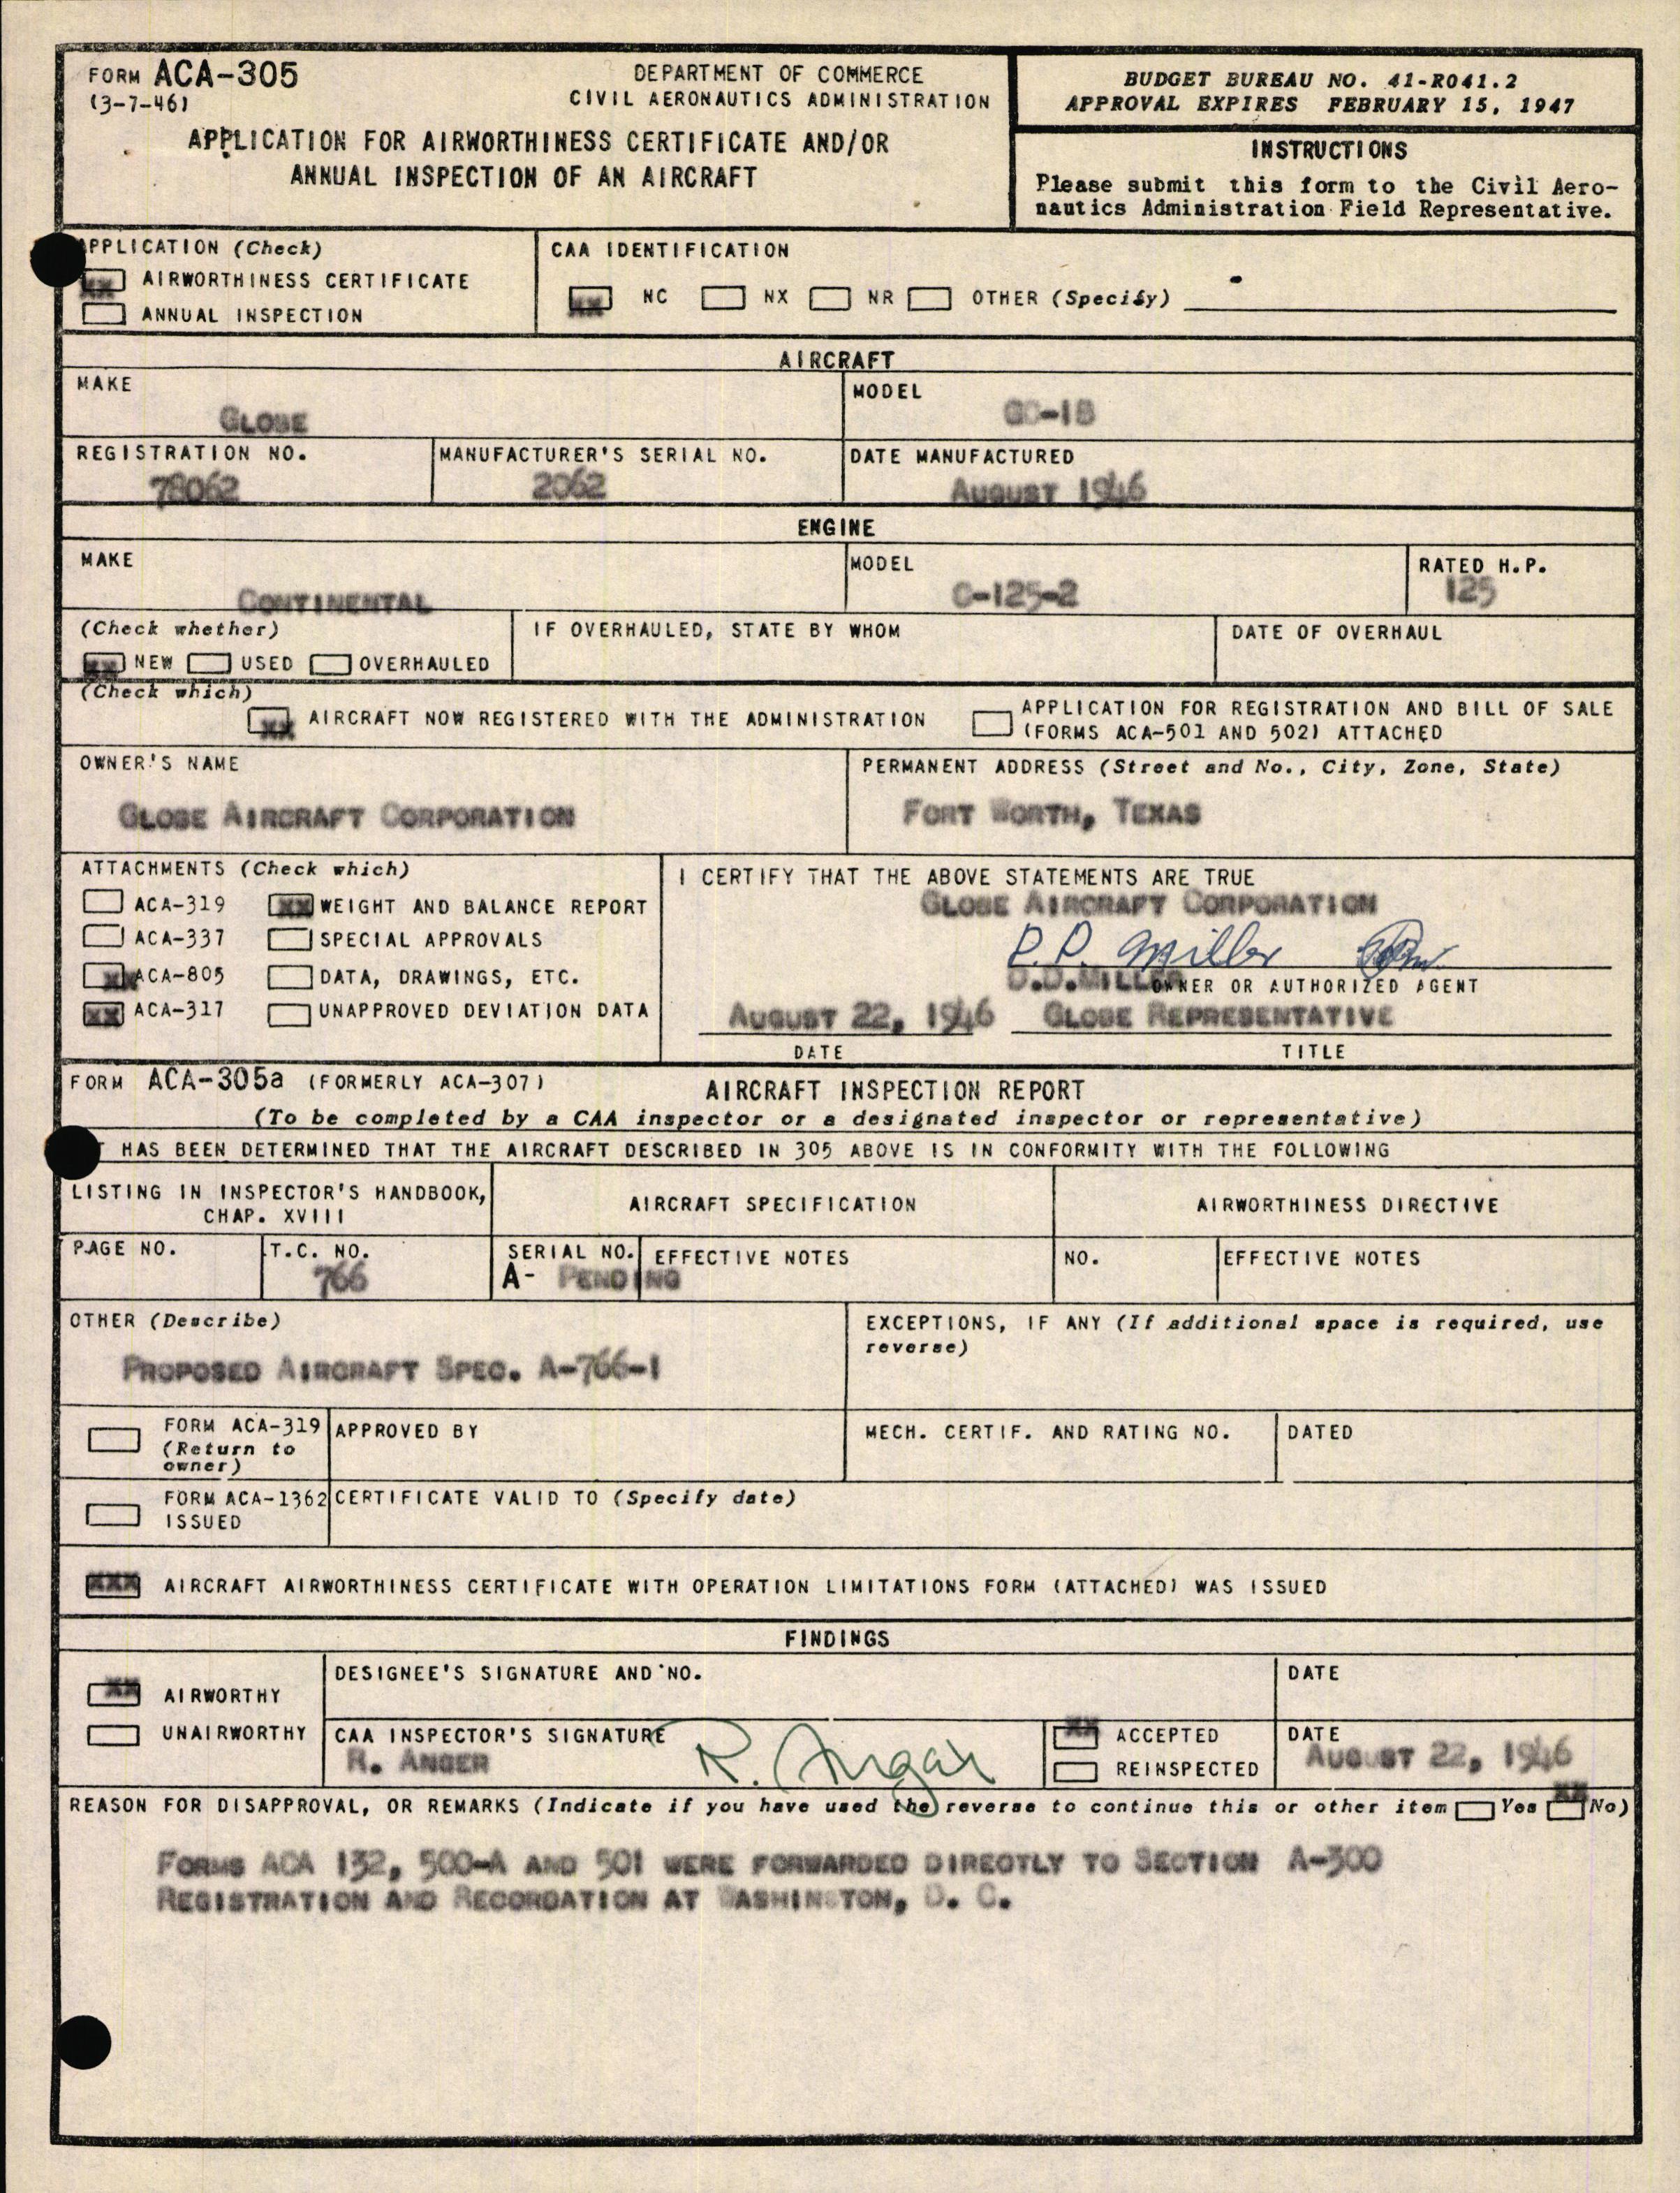 FORM ACA-305
(3-7-46)
DEPARTMENT OF COMMERCE
CIVIL AERONAUTICS ADMINISTRATION
APPLICATION FOR AIRWORTHINESS CERTIFICATE AND/OR
ANNUAL INSPECTION OF AN AIRCRAFT
BUDGET BUREAU NO. 41-R041.2
APPROVAL EXPIRES FEBRUARY 15, 1947
INSTRUCTIONS
Please submit this form to the Civil Aero-
nautics Administration Field Representative.
APPLICATION (Check)
XX AIRWORTHINESS CERTIFICATE
ANNUAL INSPECTION
CAA IDENTIFICATION
XX NC NX NR OTHER (Specify)
AIRCRAFT
MAKE
GLOBE
MODEL
GC-1B
REGISTRATION NO.
78062
MANUFACTURER'S SERIAL NO.
2062
DATE MANUFACTURED
AUGUST 1946
ENGINE
MAKE
CONTINENTAL
MODEL
C-125-2
RATED H.P.
125
(Check whether)
XX NEW USED OVERHAULED
IF OVERHAULED, STATE BY WHOM
DATE OF OVERHAUL
(Check which)
XX AIRCRAFT NOW REGISTERED WITH THE ADMINISTRATION
APPLICATION FOR REGISTRATION AND BILL OF SALE
(FORMS ACA-501 AND 502) ATTACHED
OWNER'S NAME
GLOBE AIRCRAFT CORPORATION
PERMANENT ADDRESS (Street and No., City, Zone, State)
FORT WORTH, TEXAS
ATTACHMENTS (Check which)
ACA-319 XX WEIGHT AND BALANCE REPORT
ACA-337 SPECIAL APPROVALS
XX ACA-805 DATA, DRAWINGS, ETC.
XX ACA-317 UNAPPROVED DEVIATION DATA
I CERTIFY THAT THE ABOVE STATEMENTS ARE TRUE
GLOBE AIRCRAFT CORPORATION
D.D. Miller
D.D.MILLER OWNER OR AUTHORIZED AGENT
AUGUST 22, 1946 GLOBE REPRESENTATIVE
DATE TITLE
FORM ACA-305a (FORMERLY ACA-307)
AIRCRAFT INSPECTION REPORT
(To be completed by a CAA inspector or a designated inspector or representative)
IT HAS BEEN DETERMINED THAT THE AIRCRAFT DESCRIBED IN 305 ABOVE IS IN CONFORMITY WITH THE FOLLOWING
LISTING IN INSPECTOR'S HANDBOOK,
CHAP. XVIII
AIRCRAFT SPECIFICATION
AIRWORTHINESS DIRECTIVE
PAGE NO.
T.C. NO.
766
SERIAL NO. EFFECTIVE NOTES
A- PENDING
NO.
EFFECTIVE NOTES
OTHER (Describe)
PROPOSED AIRCRAFT SPEC. A-766-1
EXCEPTIONS, IF ANY (If additional space is required, use
reverse)
FORM ACA-319
(Return to
owner)
APPROVED BY
MECH. CERTIF. AND RATING NO.
DATED
FORM ACA-1362
ISSUED
CERTIFICATE VALID TO (Specify date)
XXX AIRCRAFT AIRWORTHINESS CERTIFICATE WITH OPERATION LIMITATIONS FORM (ATTACHED) WAS ISSUED
FINDINGS
XX AIRWORTHY
UNAIRWORTHY
DESIGNEE'S SIGNATURE AND NO.
DATE
CAA INSPECTOR'S SIGNATURE
R. ANGER
R. Anger
XX ACCEPTED
REINSPECTED
DATE
AUGUST 22, 1946
REASON FOR DISAPPROVAL, OR REMARKS (Indicate if you have used the reverse to continue this or other item Yes XX No)
FORMS ACA 132, 500-A AND 501 WERE FORWARDED DIRECTLY TO SECTION A-300
REGISTRATION AND RECORDATION AT WASHINGTON, D. C.